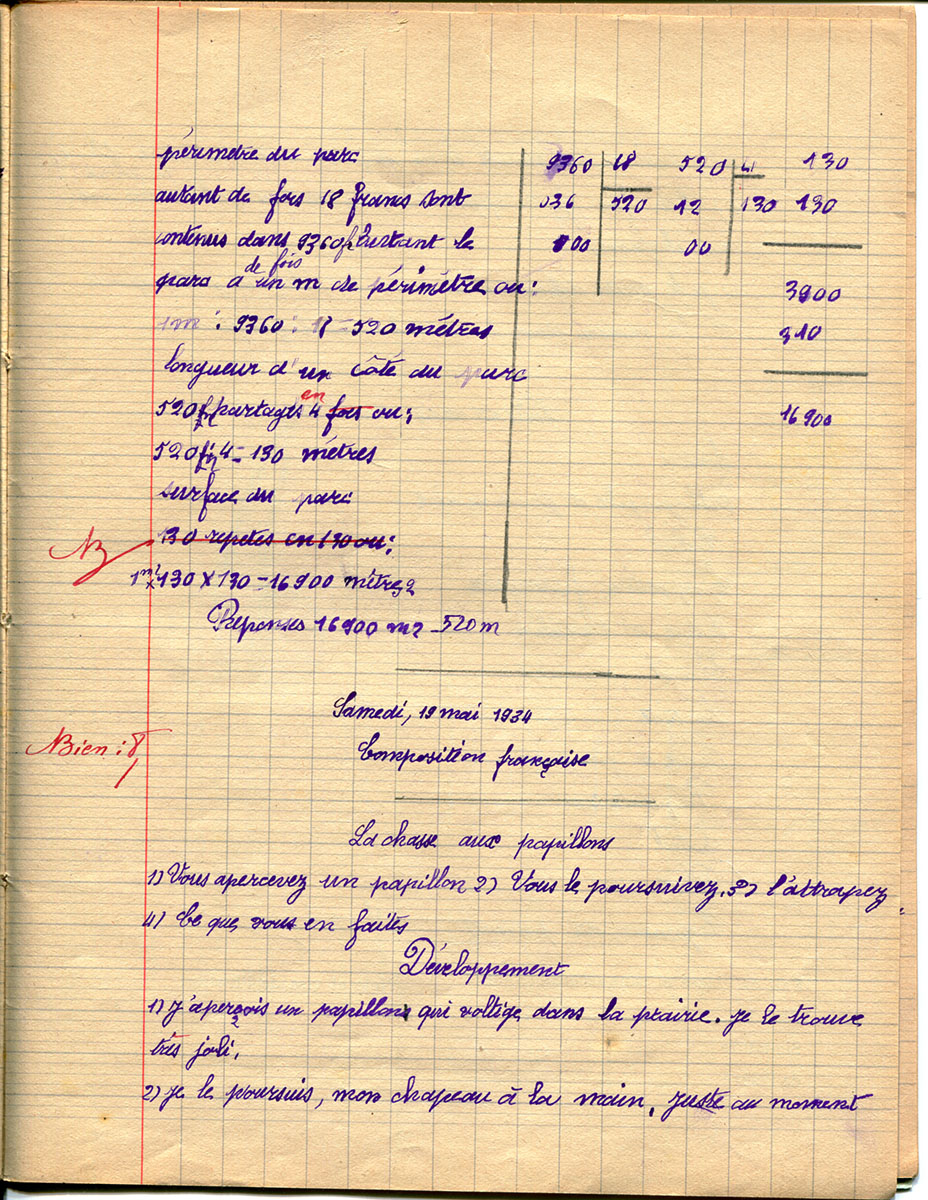 périmètre du parc
autant de fois 18 francs sont
contenus dans 9360f
de fois
parc a un m de périmètre ou:
1m : 9360 : 18 = 520 mètres
longueur d'un côté du parc
en
520 partagés 4 fois ou:
520 : 4 = 130 mètres
surface du parc
130 repetes en 130 ou:
1m² x 130 X 130 = 16900 mètres2
Reponses 16900 m2 _ 520m
9360 18 520 4 130
036 520 12 130 130
00 00
3900
310
16900
Samedi, 19 mai 1934
Bien : 8
Composition française
La chasse aux papillons
1) Vous apercevez un papillon 2) Vous le poursuivez. 3) l'attrapez
4) Ce que vous en faites
Développement
1) J'aperçois un papillon qui voltige dans la prairie. Je le trouve
très joli.
2) Je le poursuis, mon chapeau à la main. Juste au moment